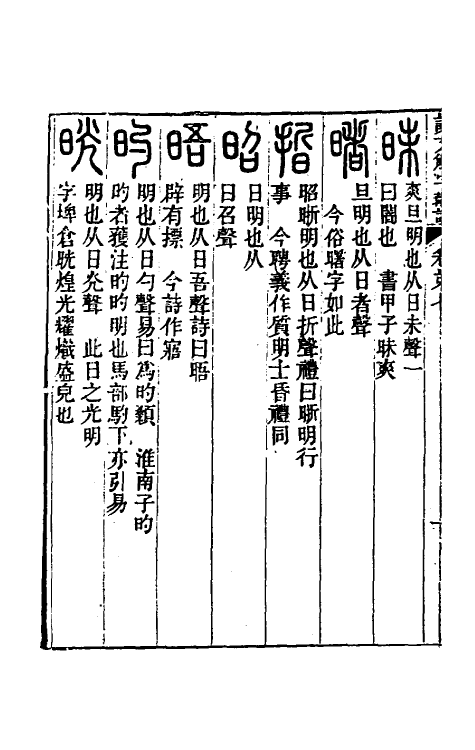 昧
爽旦明也从日未聲一
曰闇也　書甲子昧爽
睹
旦明也从日者聲
今俗曙字如此
晢
昭晣明也从日折聲禮曰晣明行
事　今聘義作質明士昏禮同
昭
日明也从
日召聲
晤
明也从日吾聲詩曰晤
辟有摽　今詩作寤
旳
明也从日勺聲易曰爲旳顙　淮南子旳
旳者獲注旳旳明也馬部馰下亦引易
晄
明也从日光聲　此日之光明
字埤倉晄煌光耀熾盛皃也